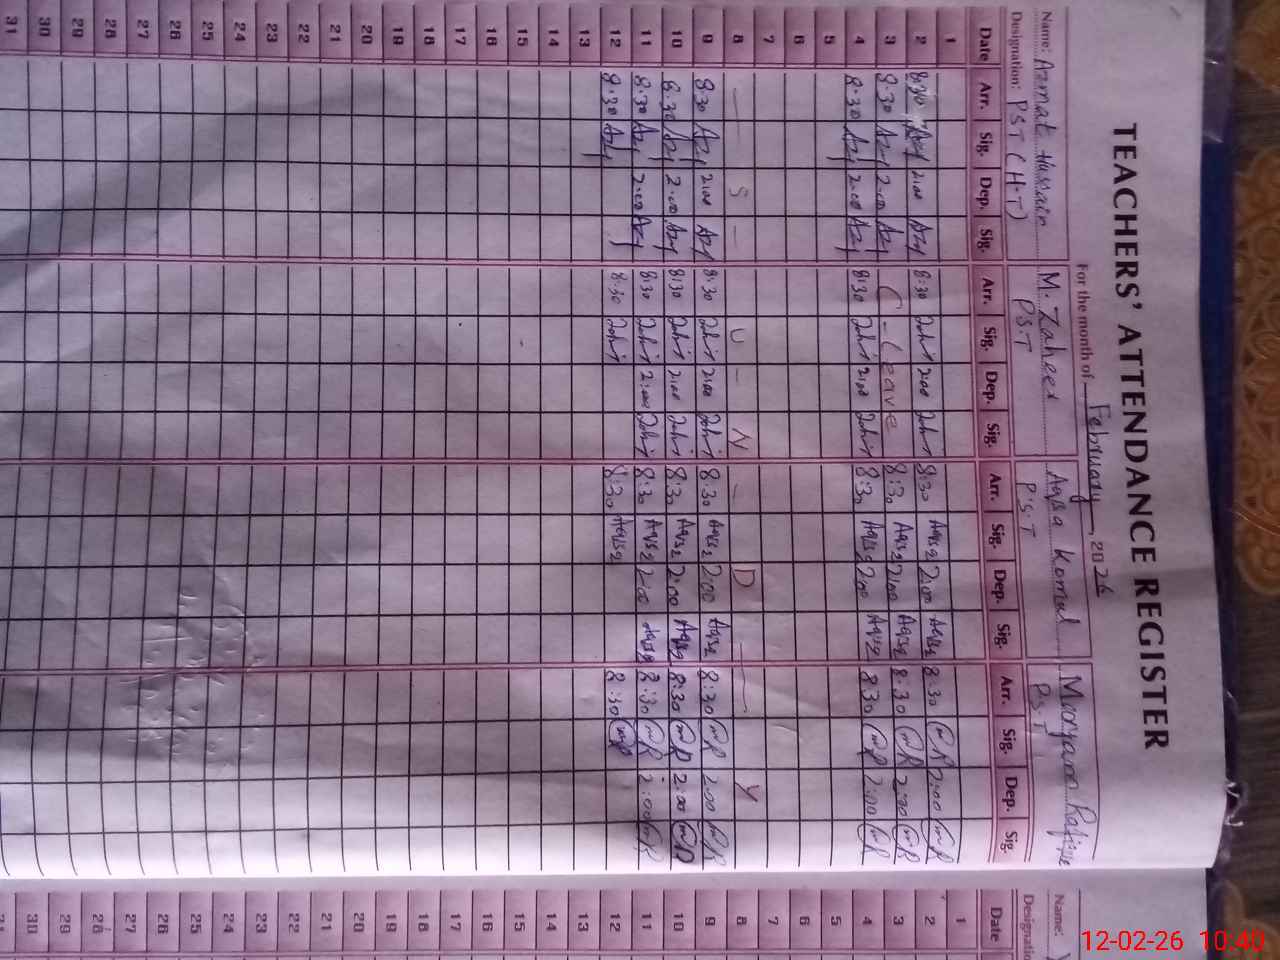 TEACHERS' ATTENDANCE REGISTER
For the month of February, 2026
Name: Azmat Hussain M. Zaheer Aqsa Komal Maryam Rafique
Designation: PST (H.T) P.S.T P.S.T P.S.T
Date Arr. Sig. Dep. Sig. Arr. Sig. Dep. Sig. Arr. Sig. Dep. Sig. Arr. Sig. Dep. Sig.
1
2 8:30 Azy 2:00 Azy 8:30 Zahir 2:00 Zahir 8:30 Aqsa 2:00 Aqsa 8:30 MR 2:00 MR
3 8:30 Azy 2:00 Azy C-leave 8:30 Aqsa 2:00 Aqsa 8:30 MR 2:00 MR
4 8:30 Azy 2:00 Azy 8:30 Zahir 2:00 Zahir 8:30 Aqsa 2:00 Aqsa 8:30 MR 2:00 MR
5
6
7
8 S - U - N - D - Y
9 8:30 Azy 2:00 Azy 8:30 Zahir 2:00 Zahir 8:30 Aqsa 2:00 Aqsa 8:30 MR 2:00 MR
10 8:30 Azy 2:00 Azy 8:30 Zahir 2:00 Zahir 8:30 Aqsa 2:00 Aqsa 8:30 MR 2:00 MR
11 8:30 Azy 2:00 Azy 8:30 Zahir 2:00 Zahir 8:30 Aqsa 2:00 Aqsa 8:30 MR 2:00 MR
12 8:30 Azy 8:30 Zahir 8:30 Aqsa 8:30 MR
13
14
15
16
17
18
19
20
21
22
23
24
25
26
27
28
29
30
31
Name:
Designation
Date
1
2
3
4
5
6
7
8
9
10
11
12
13
14
15
16
17
18
19
20
21
22
23
24
25
26
27
28
29
30
31
12-02-26 10:40